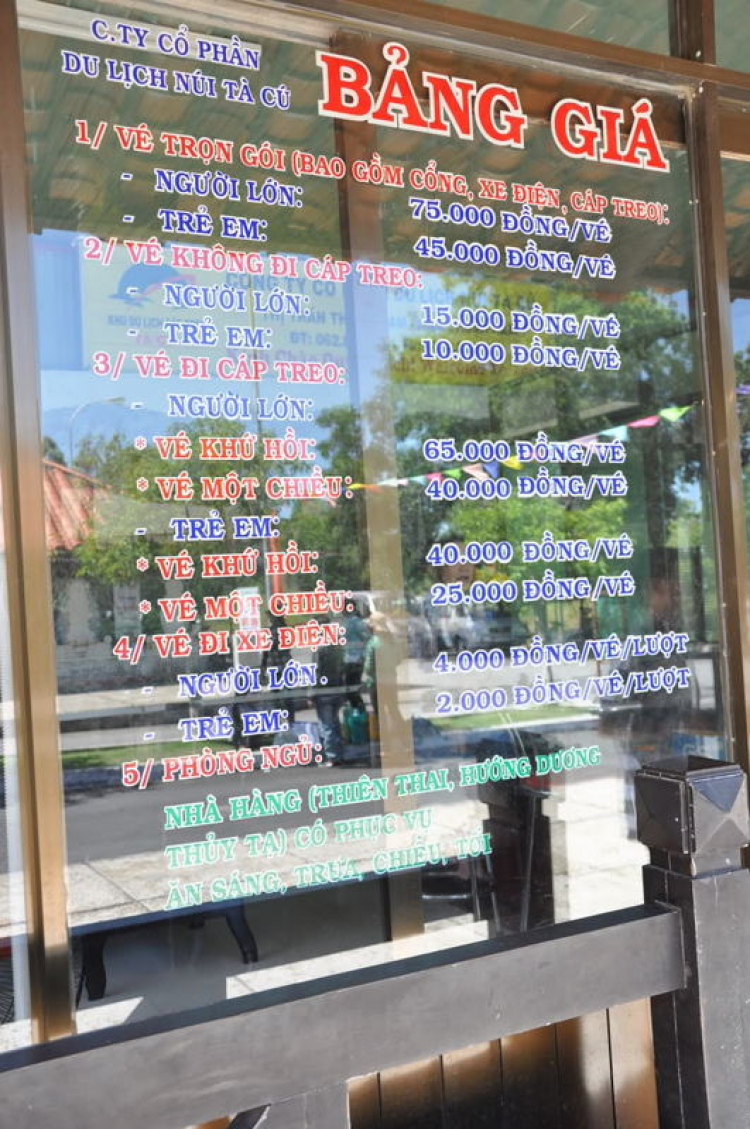 C.TY CỔ PHẦN
DU LỊCH NÚI TÀ CÚ
BẢNG GIÁ
1/ VÉ TRỌN GÓI (BAO GỒM CỔNG, XE ĐIỆN, CÁP TREO):
- NGƯỜI LỚN: 75.000 ĐỒNG/VÉ
- TRẺ EM: 45.000 ĐỒNG/VÉ
2/ VÉ KHÔNG ĐI CÁP TREO:
- NGƯỜI LỚN: 15.000 ĐỒNG/VÉ
- TRẺ EM: 10.000 ĐỒNG/VÉ
3/ VÉ ĐI CÁP TREO:
- NGƯỜI LỚN:
* VÉ KHỨ HỒI: 65.000 ĐỒNG/VÉ
* VÉ MỘT CHIỀU: 40.000 ĐỒNG/VÉ
- TRẺ EM:
* VÉ KHỨ HỒI: 40.000 ĐỒNG/VÉ
* VÉ MỘT CHIỀU: 25.000 ĐỒNG/VÉ
4/ VÉ ĐI XE ĐIỆN:
- NGƯỜI LỚN. 4.000 ĐỒNG/VÉ/LƯỢT
- TRẺ EM: 2.000 ĐỒNG/VÉ/LƯỢT
5/ PHÒNG NGỦ:
NHÀ HÀNG (THIÊN THAI, HƯỚNG DƯƠNG
THỦY TẠ) CÓ PHỤC VỤ
ĂN SÁNG, TRƯA, CHIỀU, TỐI
CÔNG TY CỔ